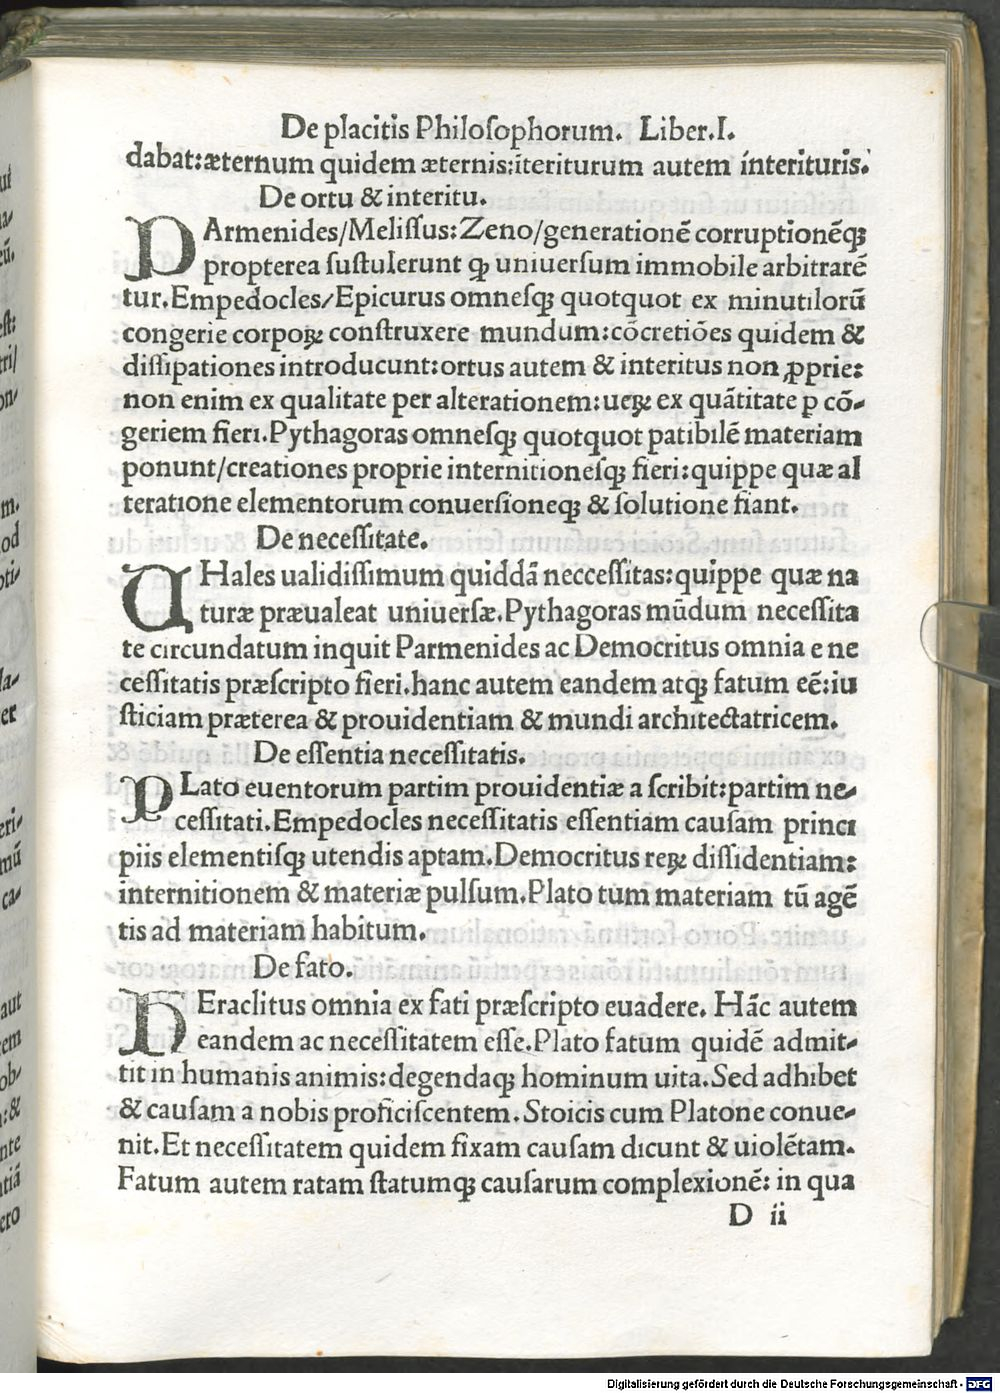 De placitis Philoſophorum. Liber.I.
dabat:æternum quidem æternis:ĩteriturum autem interituris.
De ortu & interitu.
PArmenides/Meliſſus:Zeno/generationẽ corruptionẽqꝫ
propterea ſuſtulerunt ꝙ uniuerſum immobile arbitrarẽ
tur.Empedocles/Epicurus omneſqꝫ quotquot ex minutiloꝛũ
congerie corpoꝝ conſtruxere mundum:cõcretiões quidem &
diſſipationes introducunt:ortus autem & interitus non ꝓprie:
non enim ex qualitate per alterationem:ueꝝ ex quãtitate p cõ-
geriem fieri.Pythagoras omneſqꝫ quotquot patibilẽ materiam
ponunt/creationes proprie internitioneſqꝫ fieri:quippe quæ al
teratione elementorum conuerſioneqꝫ & ſolutione fiant.
De neceſſitate.
THales ualidiſſimum quiddã necceſſitas:quippe quæ na
turæ præualeat uniuerſæ.Pythagoras mũdum neceſſita
te circundatum inquit Parmenides ac Democritus omnia e ne
ceſſitatis præſcripto fieri.hanc autem eandem atqꝫ fatum eẽ:iu
ſticiam præterea & prouidentiam & mundi architectatricem.
De eſſentia neceſſitatis.
PLato euentorum partim prouidentiæ a ſcribit:partim ne-
ceſſitati.Empedocles neceſſitatis eſſentiam cauſam princi
piis elementiſqꝫ utendis aptam.Democritus reꝝ diſſidentiam:
internitionem & materiæ pulſum.Plato tum materiam tũ agẽ
tis ad materiam habitum.
De fato.
HEraclitus omnia ex fati præſcripto euadere. Hãc autem
eandem ac neceſſitatem eſſe.Plato fatum quidẽ admit-
tit in humanis animis:degendaqꝫ hominum uita.Sed adhibet
& cauſam a nobis proficiſcentem.Stoicis cum Platone conue-
nit.Et neceſſitatem quidem fixam cauſam dicunt & uiolẽtam.
Fatum autem ratam ſtatumqꝫ cauſarum complexionẽ: in qua
D ii
Digitalisierung gefördert durch die Deutsche Forschungsgemeinschaft - DFG